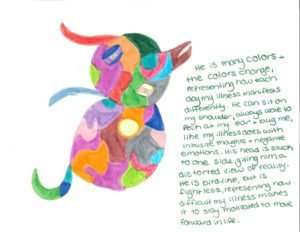 He is many colors +
the colors change,
representing how each
day my illness manifests
differently. He can sit on
my shoulder, always able to
peck at my ear + bug me,
like my illness does with
intrusive thoughts + negative
emotions. His head is stuck
to one side, giving him a
distorted view of reality.
He is bird-like, but is
flight-less, representing how
difficult my illness makes
it to stay motivated to move
forward in life.